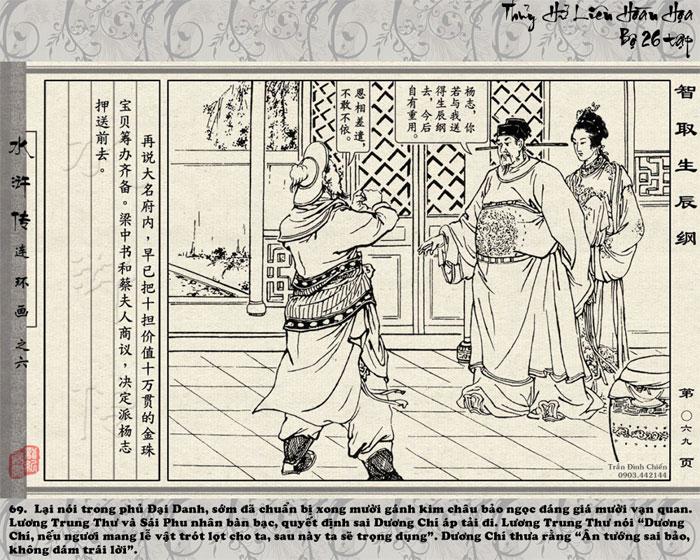 Thủy Hử Liên Hoàn Họa
Bộ 26 tập
智取生辰纲
第〇六九页
杨志，你
若与我送
得生辰纲
去，今后
自有重用。
恩相差遣，
不敢不依。
再说大名府内，早已把十担价值十万贯的金珠
宝贝筹办齐备。梁中书和蔡夫人商议，决定派杨志
押送前去。
水浒传连环画之六
Trần Đình Chiến
0903.442144
69. Lại nói trong phủ Đại Danh, sớm đã chuẩn bị xong mười gánh kim châu bảo ngọc đáng giá mười vạn quan.
Lương Trung Thư và Sái Phu nhân bàn bạc, quyết định sai Dương Chí áp tải đi. Lương Trung Thư nói “Dương
Chí, nếu ngươi mang lễ vật trót lọt cho ta, sau này ta sẽ trọng dụng”. Dương Chí thưa rằng “Ân tướng sai bảo,
không dám trái lời”.